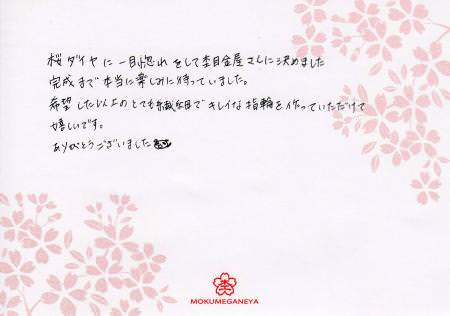 桜ダイヤに一目惚れをして杢目金屋さんに決めました
完成まで本当に楽しみに待っていました。
希望した以上のとても綺麗でキレイな指輪を作っていただけて
嬉しいです。
ありがとうございました
杢
MOKUMEGANEYA